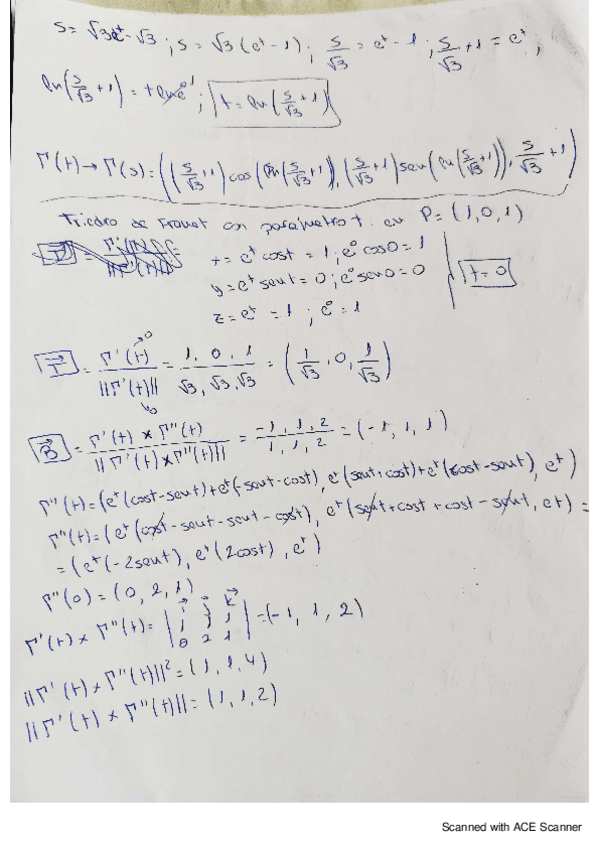 S = √3e^t - √3 ; S = √3 (e^t - 1) ; S/√3 = e^t - 1 ; S/√3 + 1 = e^t ;
ln(S/√3 + 1) = t ln e^1 ; t = ln(S/√3 + 1)
Γ(t) → Γ(s) = ((S/√3 + 1) cos(ln(S/√3 + 1)), (S/√3 + 1) sen(ln(S/√3 + 1)), S/√3 + 1)
Triedro de Frenet con parámetro t en P = (1, 0, 1)
x = e^t cost = 1 ; e^0 cos0 = 1
y = e^t sent = 0 ; e^0 sen0 = 0
t = 0
z = e^t = 1 ; e^0 = 1
T = Γ'(t) / ||Γ'(t)|| = 1, 0, 1 / √3, √3, √3 = (1/√3, 0, 1/√3)
B = Γ'(t) x Γ''(t) / ||Γ'(t) x Γ''(t)|| = -1, 1, 2 / 1, 1, 2 = (-1, 1, 1)
Γ''(t) = (e^t (cost - sent) + e^t (-sent - cost), e^t (sent + cost) + e^t (cost - sent), e^t)
Γ''(t) = (e^t (cost - sent - sent - cost), e^t (sent + cost + cost - sent, et) =
= (e^t (-2sent), e^t (2cost), e^t)
Γ''(0) = (0, 2, 1)
Γ'(t) x Γ''(t) = | i j k | 1 1 1 | 0 2 1 | = (-1, 1, 2)
||Γ'(t) x Γ''(t)||² = (1, 1, 4)
||Γ'(t) x Γ''(t)|| = (1, 1, 2)
Scanned with ACE Scanner